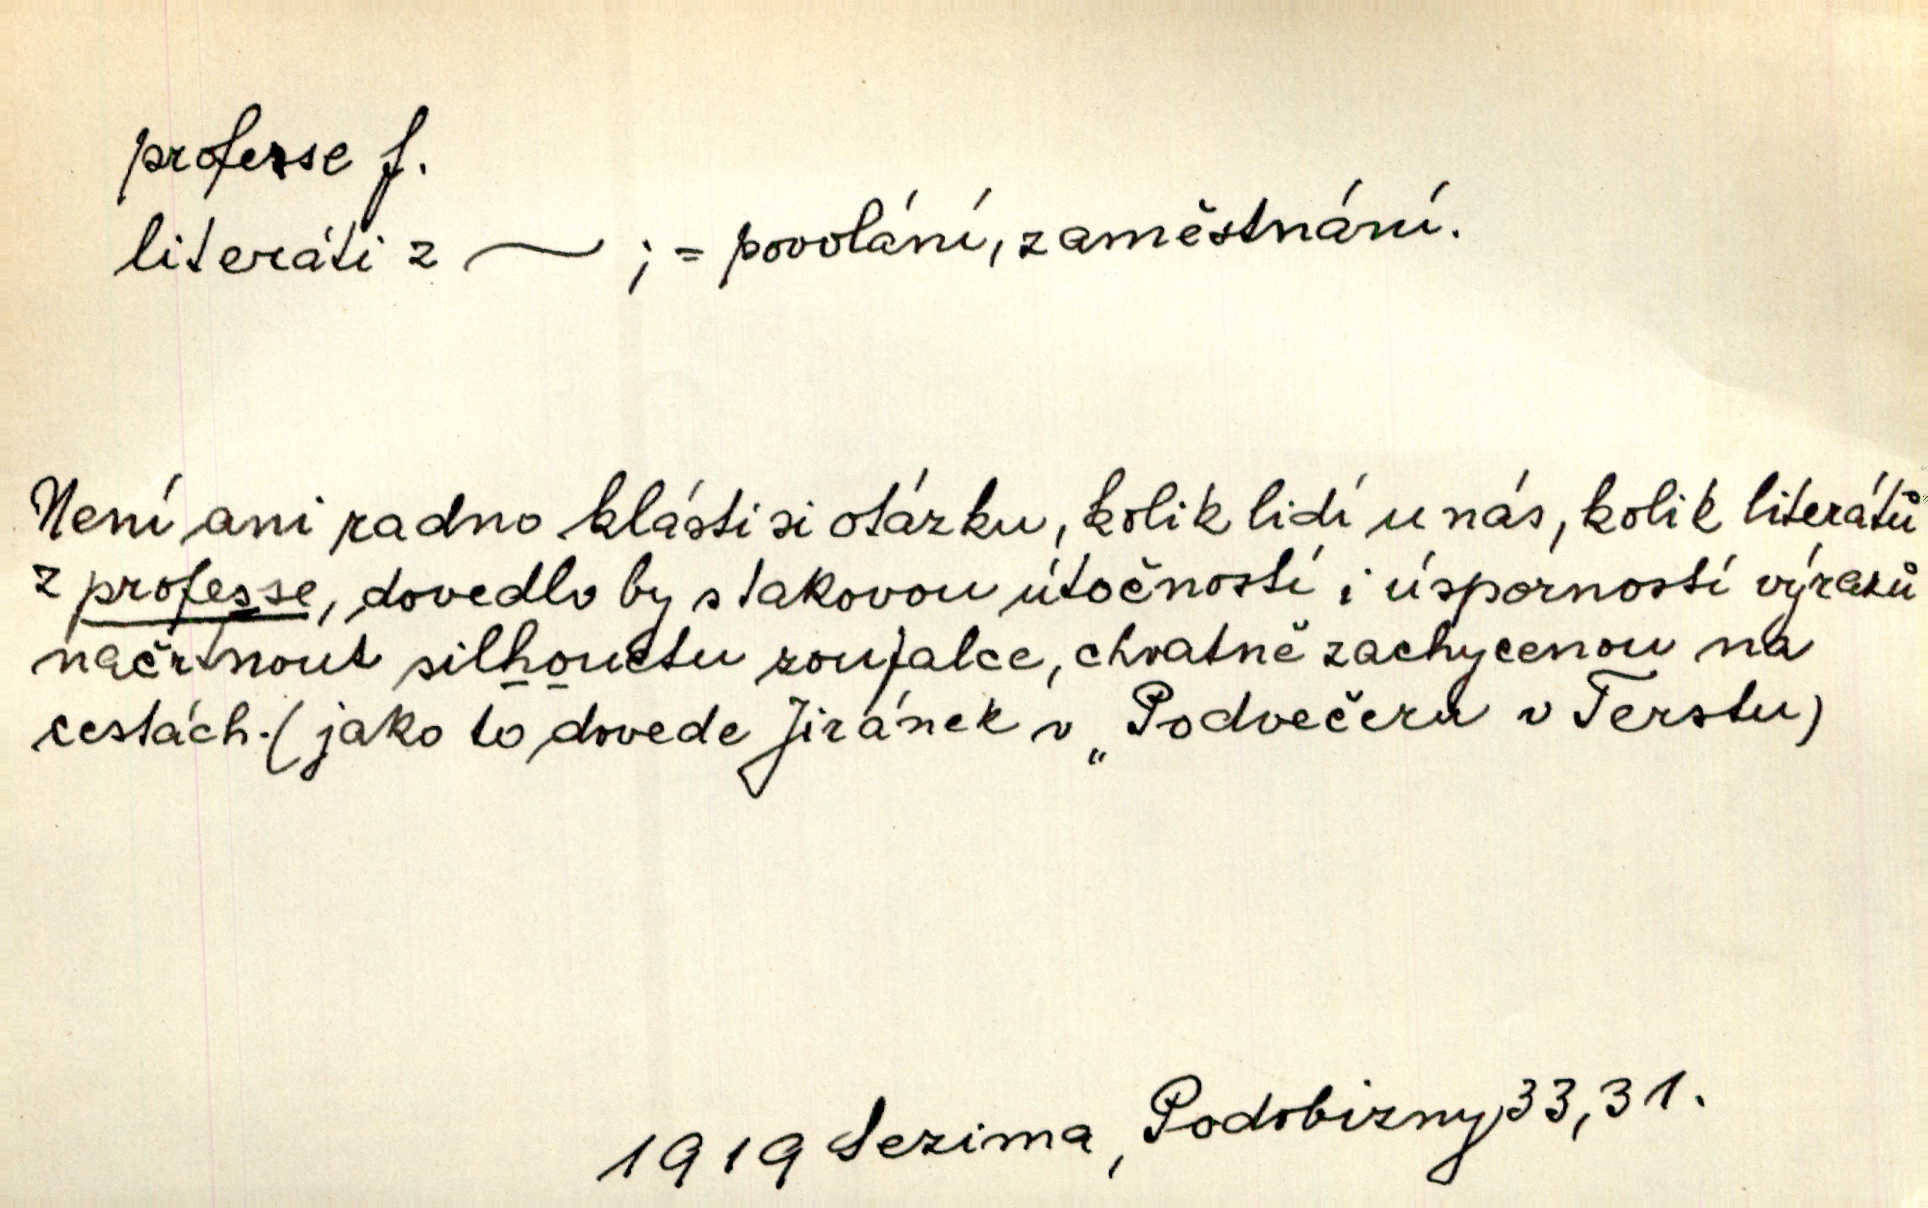 professe f.
literáti z ~ ; = povolání, zaměstnání.
Není ani radno klásti si otázku, kolik lidí u nás, kolik literátů
z professe, dovedlo by s takovou útočností i úsporností výrazů
načrtnout silhouettu zoufalce, chvatně zachycenou na
cestách. (jako to dovede Jiránek v „Podvečeru v Terstu)
1919 Sezima, Podobizny 33,31.